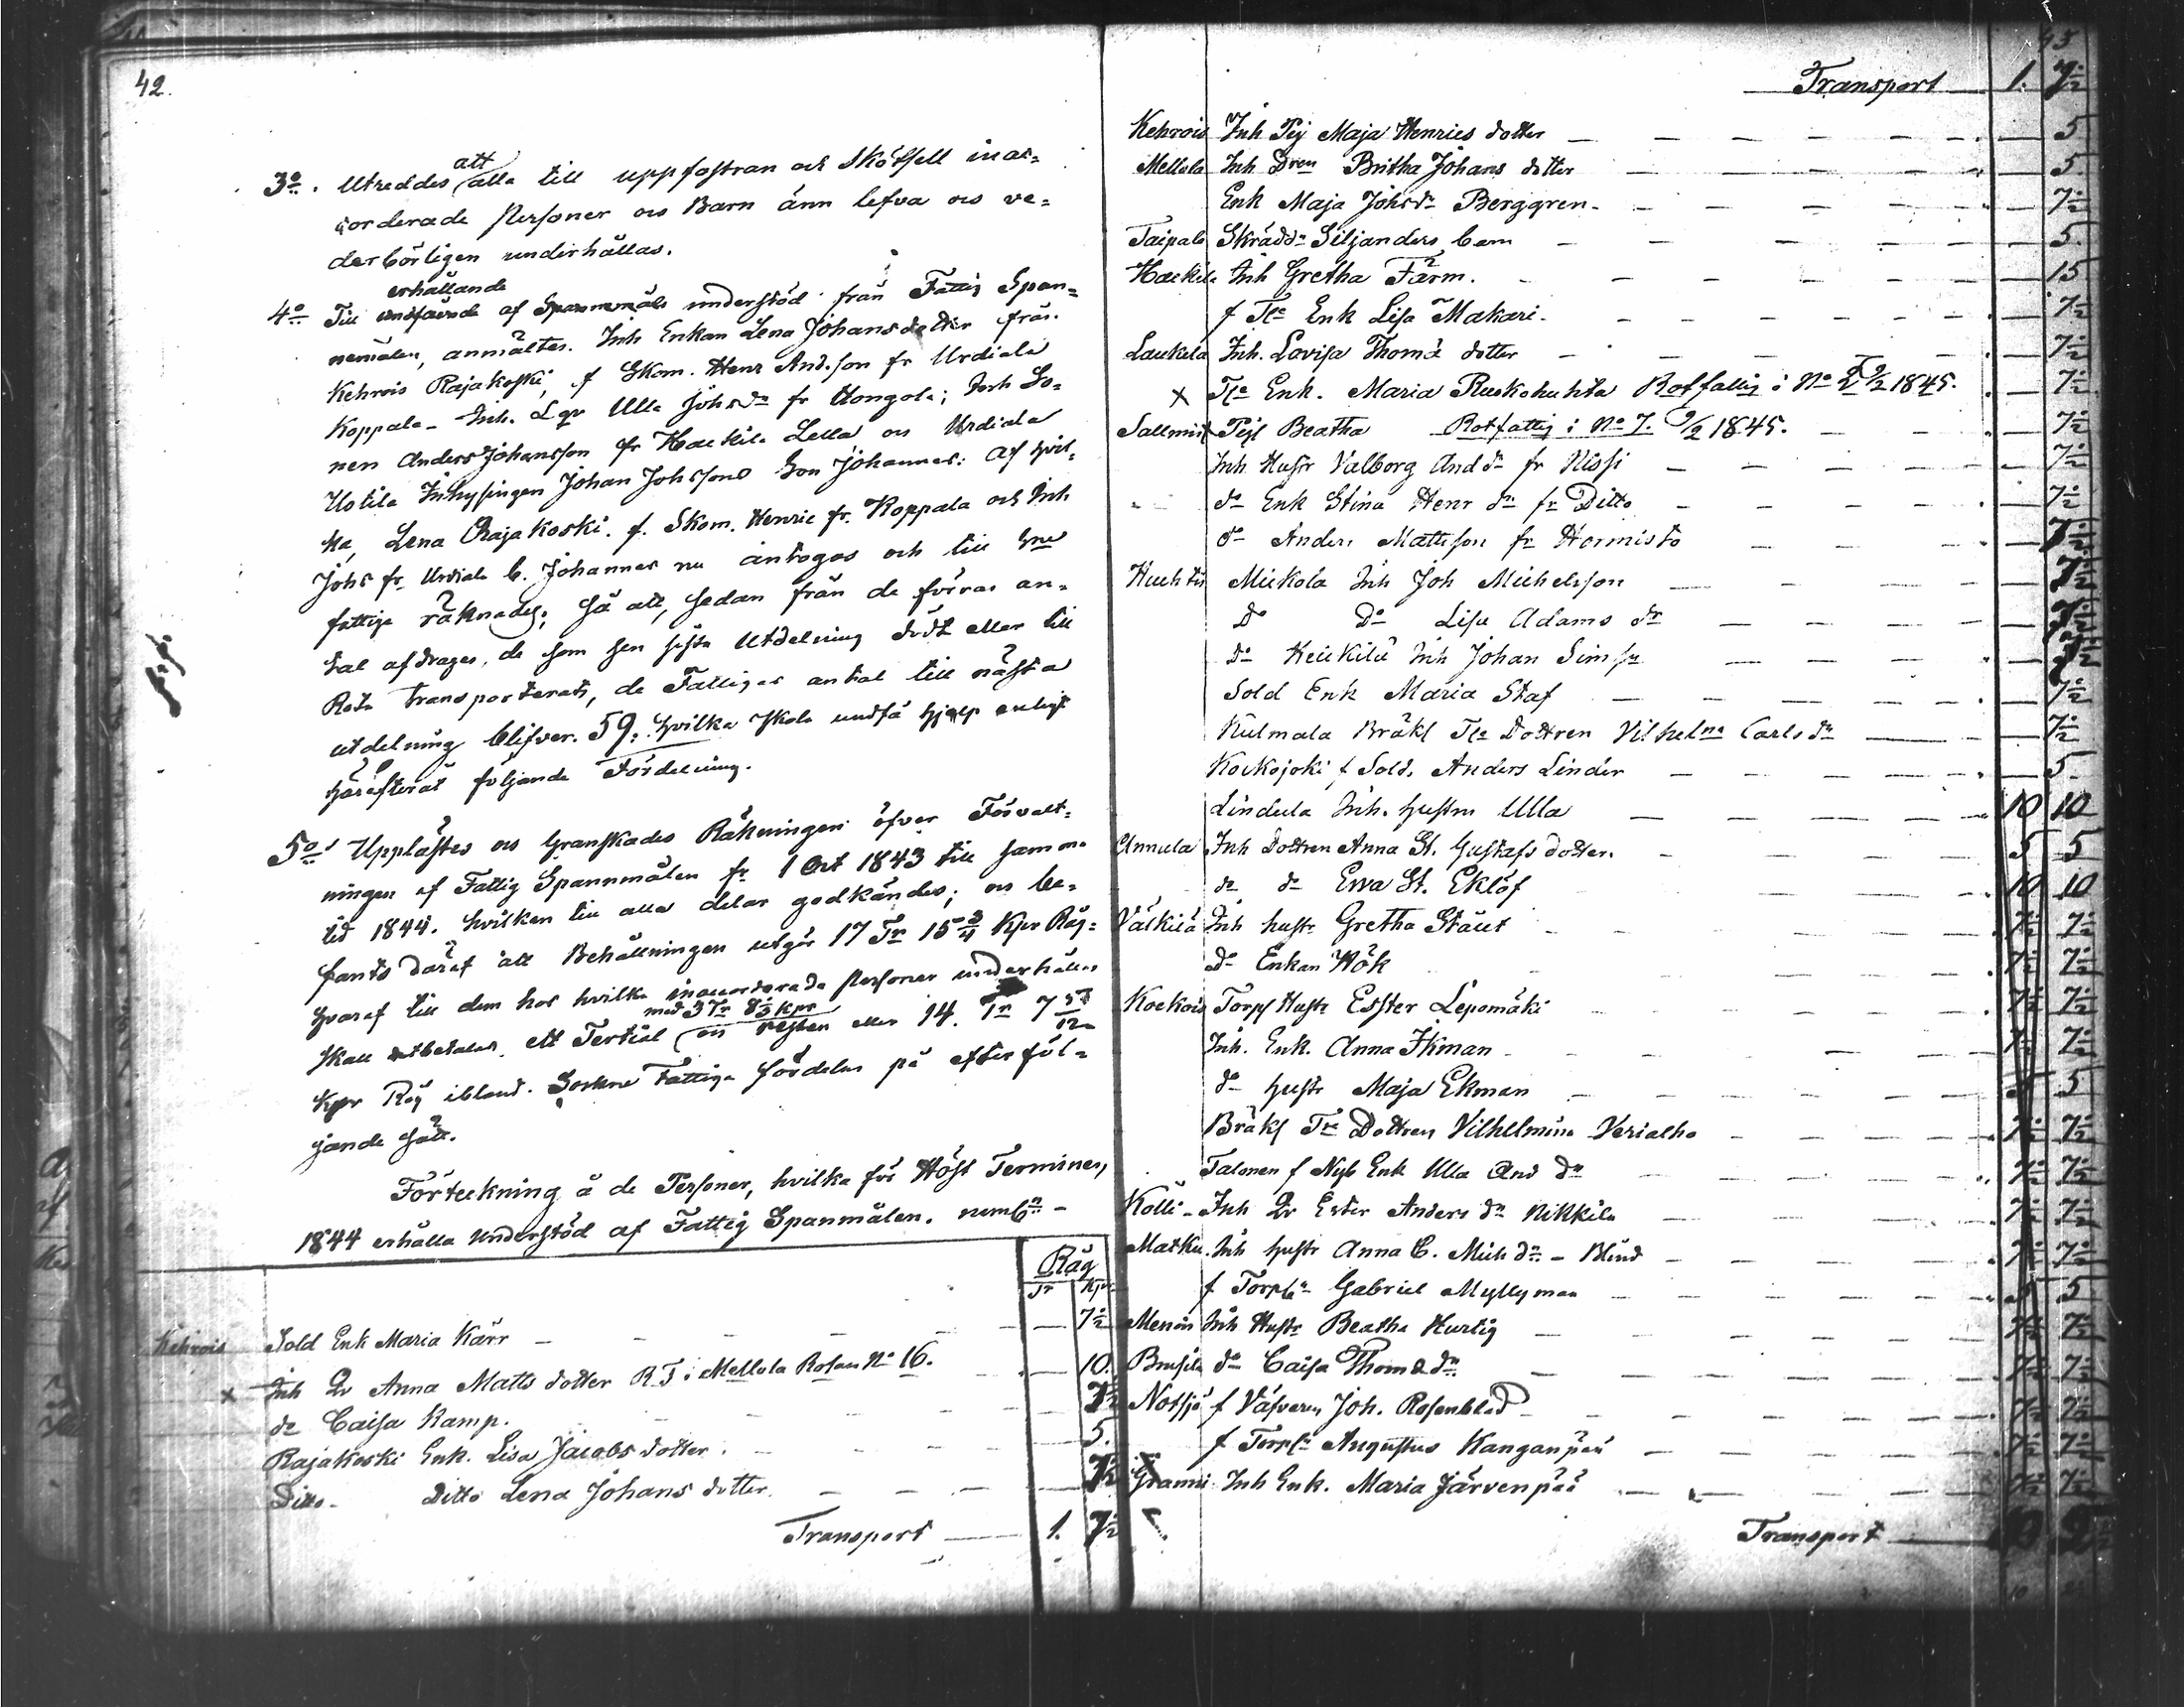 42.
3o. Utreddes att alla till uppfostran och Skötsell inac-
corderade Personer och Barn änn lefva och ve-
derbörligen underhållas.
erhållande
4o Till undfående af Spannemåls understöd från Fattig Span-
nemålen, anmältes. Inh Enkan Lena Johansdotter från
Kehrois Rajakoski, f Skom. Henr And.son fr Urdiala
Koppala - Inh. Lqv Ulla Johsdr fr Hongola; Inh So-
nen Anders Johansson fr Haekila Lella och Urdiala
Ustila Inhysingen Johan Johssons Son Johannes: Af hvil-
ka, Lena Rajakoski. f. Skom. Henric fr. Koppala och Inh
Johs fr. Urdiala b. Johannes nu antogos och till
fattige räknades; Så att, sedan från de förras an-
tal afdrages, de som sen sista Utdelning dödt eller till
Rota transporterats, de Fattigas antal till nästa
utdelning blifver. 59. hvilka skola undfå hjelp enligt
härefteråt följande Fördelning.
5o Upplästes och Granskades Räkningen öfver Förvalt-
ningen af Fattig Spannmålen fr 1 Oct 1843 till samma
tid 1844. hvilken till alla delar godkändes; och be-
fants däraf att Behållningen utgör 17 Tr 15 3/4 Kpr Råg:
hvaraf till dem hos hvilka inaccorderade Personer underhållas
med 3 Tr 8 1/3 kpr
skall utbetalas ett Tertial och resten eller 14. Tr 7 5/12
Kpr Råg ibland Socknens Fattiga fördelas på efterföl-
jande Sätt.
Förteckning å de Personer, hvilka för Höst Terminen,
1844 erhålla Understöd af Fattig Spanmålen. nembn -
Råg
Tr Kpr
Kehrois Sold Enk Maria Kärr — 7½
x Inh Qv Anna Matts dotter R.F. i Mellola Rotan No 16. — 10.
do Caisa Kamp. — 7½
Rajakoski Enk. Lisa Jacobs dotter. — 5.
Ditto - Ditto Lena Johans dotter. — 7½
Transport — 1. 7½
43
Transport — 1. 7½
Kehrois Inh Pij Maja Henrics dotter — 5
Mellola Inh Dren Britha Johans dotter — 5.
Enk Maja Johsdr Berggren. — 7½
Taipale Skräddr Siljanders barn — 5.
Haekila Inh Gretha Färm. — 15
f Tle Enk Lisa Makari. — 7½
Laukela Inh. Lovisa Thomæ dotter — 7½
x Tle Enk. Maria Ruskohuhta Rotfattig i No 2 9/2 1845. 7½
Sallmis Pejl Beatha Rotfattig i No 7. 9/2 1845. — 7½
Inh Hustr Valborg And dr fr Nissi — 7½
do Enk Stina Henr dr fr Ditto — 7½
do Anders Mattsson fr Hormisto — 7½
Huhtis Mickola Inh Joh Michelsson — 7½
Do Do Lisa Adams dr — 7½
do Heickilä Inh Johan Sim sn — 7½
Sold Enk Maria Staf — 7½
Kulmala Bräkl Tle Dottren Vilhelma Carls dr — 7½
Kockojoki f Sold. Anders Linder — 5.
Lindula Inh. hustru Ulla — 10 10
Annula Inh Dottren Anna St. Gustafs dotter. — 5 5
do do Ewa St. Eklöf 10 10
Välkilä Inh hustr Gretha Stäut — 7½ 7½
do Enkan Hök 7½ 7½
Kockois Torps Hustr Esster Lepomäki 7½ 7½
Inh. Enk. Anna Ikman — 7½ 7½
do hustr Maja Ekman — 5 5
Bräkl Tre Dottren Vilhelmina Verialho — 7½ 7½
Talonen f Nyb Enk Ulla And dr — 7½ 7½
Kolli - Inh Qv Ester Anders dr Nikkila — 7½ 7½
Matku. Inh hustr Anna C. Mich dr. - Blind — 7½ 7½
f Torpn Gabriel Myllyman — 5 5
Menois Inh Hustr Beatha Hurtig — 7½ 7½
do Caisa Thomæ dr. — 7½ 7½
Notsjö f Väfveren Joh. Rosenblad — 7½ 7½
f Torpn Augustus Kanganpää — 7½ 7½
Inh Enk. Maria Järvenpää — 7½ 7½
Transport — 10 2